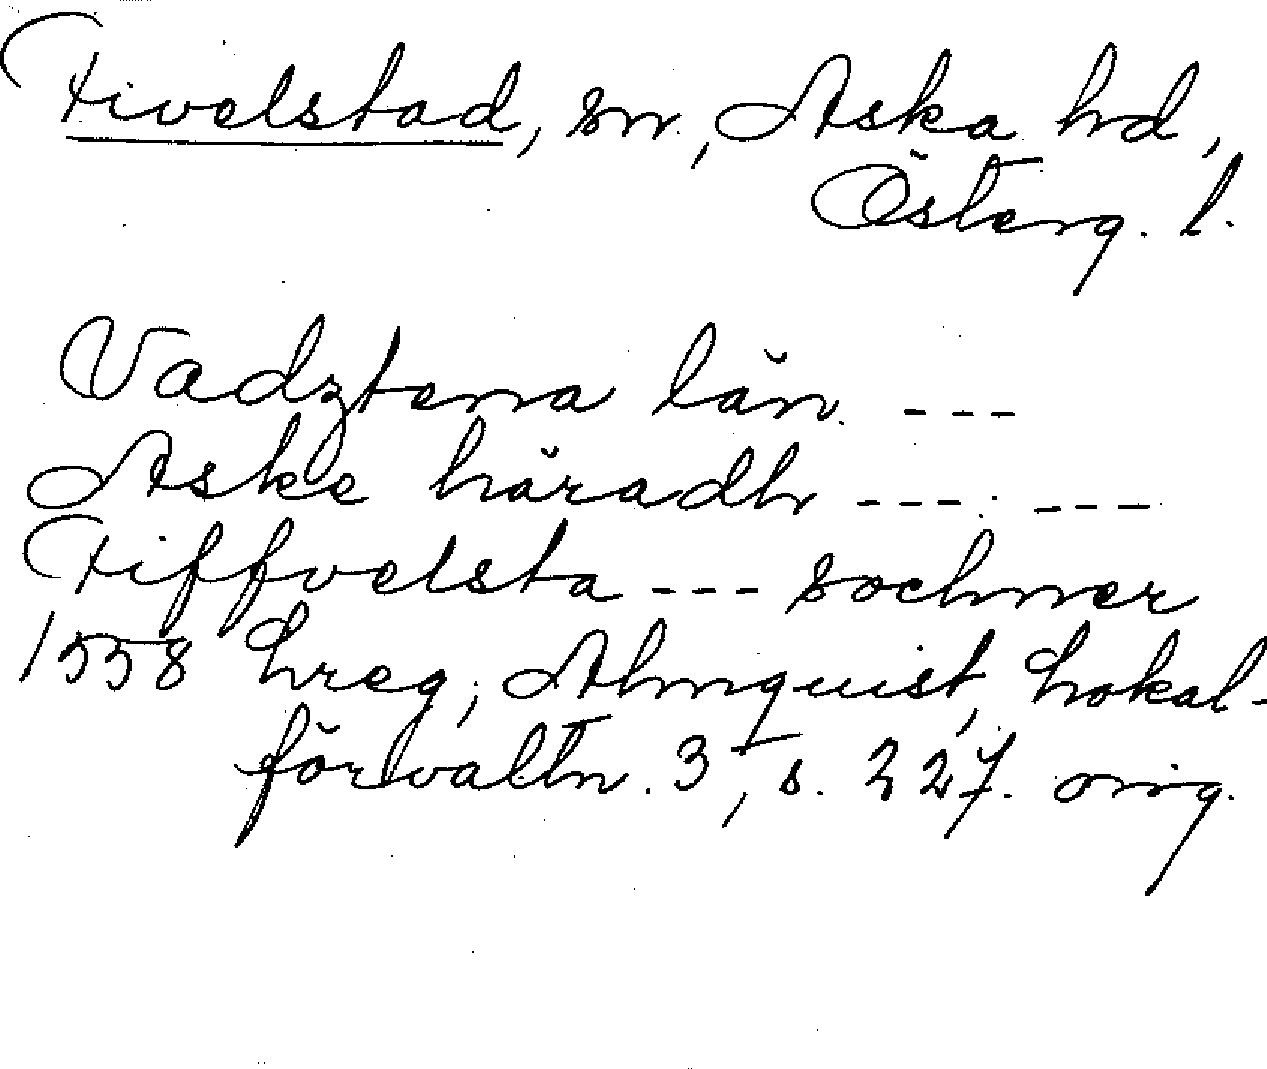 Fivelstad, sn, Aska hd,
Österg. l.
Vadztena län. ---
Aske häradh --- ---
Fiffvelsta --- sochner
1558 Lreg, Almquist, Lokal-
förvaltn. 3, s. 227. orig.